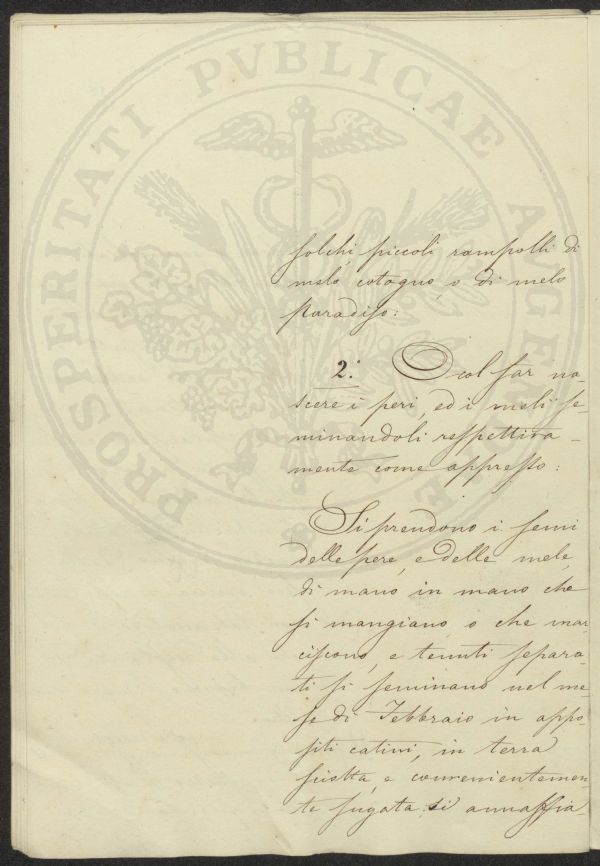 PROSPERITATI PVBLICAE AVGENDAE
solchi piccoli rampolli di
melo cotogno, o di melo
paradiso:
2.° O col far na-
scere i peri, ed i meli se-
minandoli respettiva-
mente come appresso:
Si prendono i semi
delle pere, e delle mele,
di mano in mano che
si mangiano, o che mar-
ciscono, e tenuti separa-
ti si seminano nel me-
se di Febbraio in appo-
siti catini, in terra
sciolta, e convenientemen-
te sugata. si annaffia-